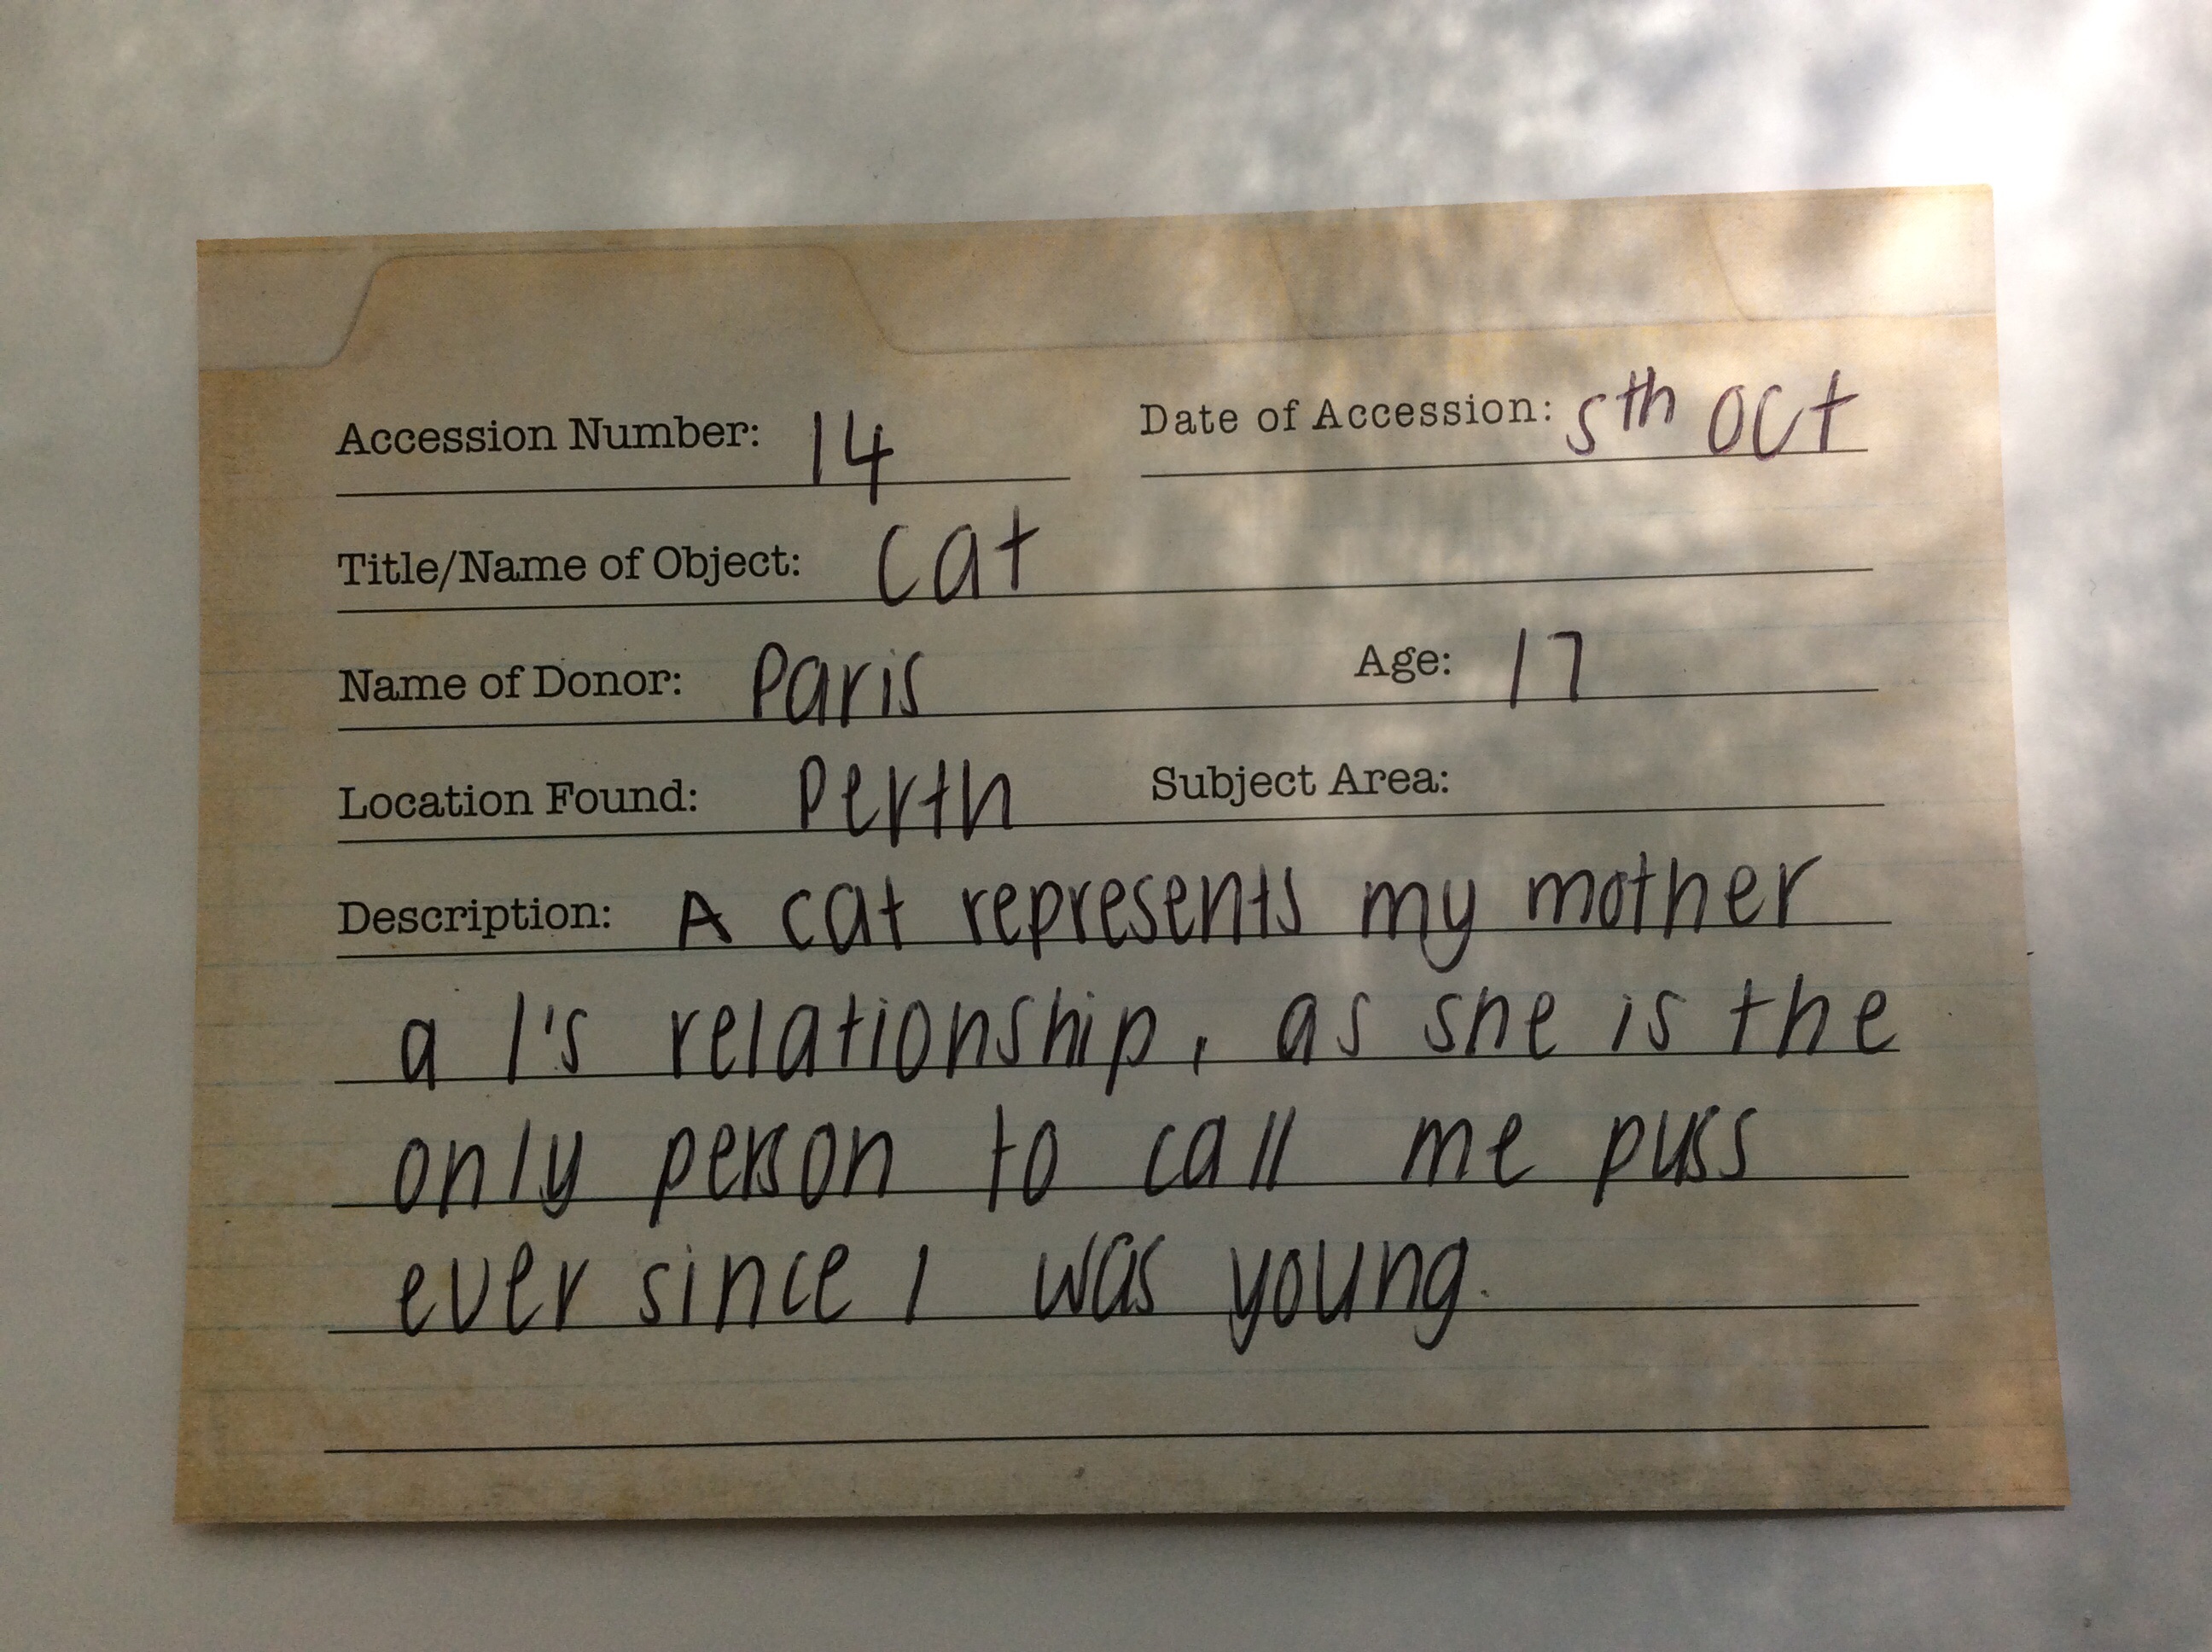 Accession Number: 14 Date of Accession: 5th Oct
Title/Name of Object: Cat
Name of Donor: Paris Age: 17
Location Found: Perth Subject Area:
Description: A cat represents my mother
a I's relationship, as she is the
only person to call me puss
ever since I was young.